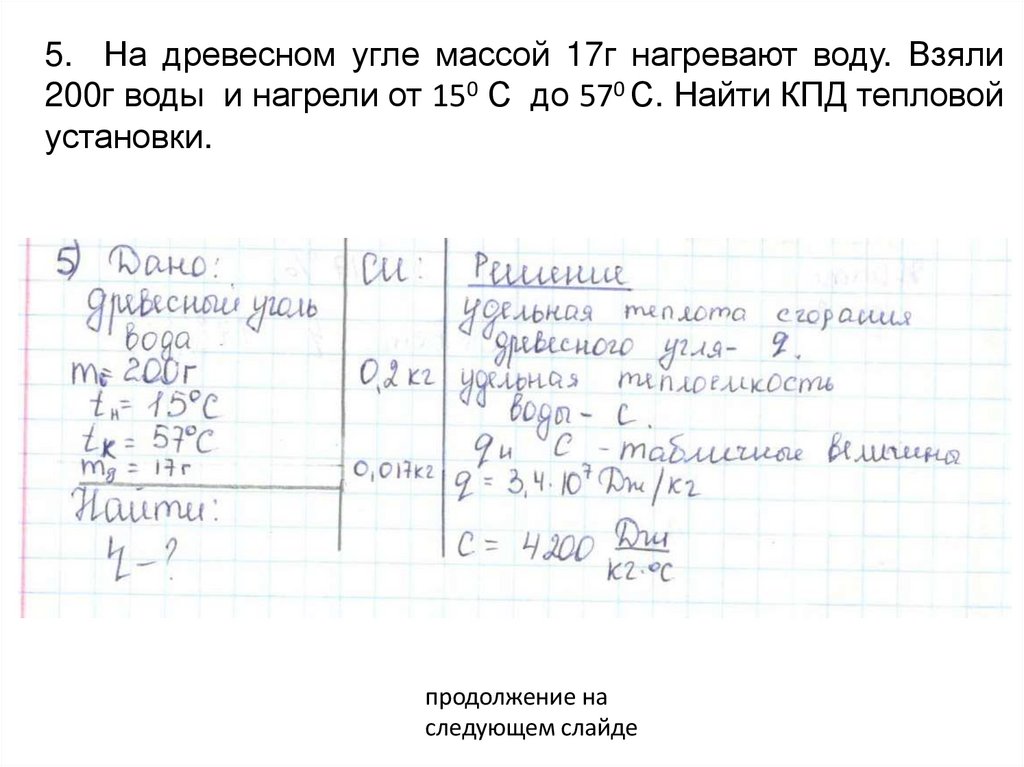 5. На древесном угле массой 17г нагревают воду. Взяли
200г воды и нагрели от 15⁰ С до 57⁰ С. Найти КПД тепловой
установки.
5) Дано:
древесный уголь
вода
mв= 200г
tн= 15°С
tк = 57°С
mд = 17г
Найти:
η – ?
СИ:
0,2 кг
0,017кг
Решение
удельная теплота сгорания
древесного угля- q.
удельная теплоемкость
воды - с.
q и с - табличные величины
q = 3,4·10⁷ Дж/кг
с = 4200 Дж/кг·°С
продолжение на
следующем слайде